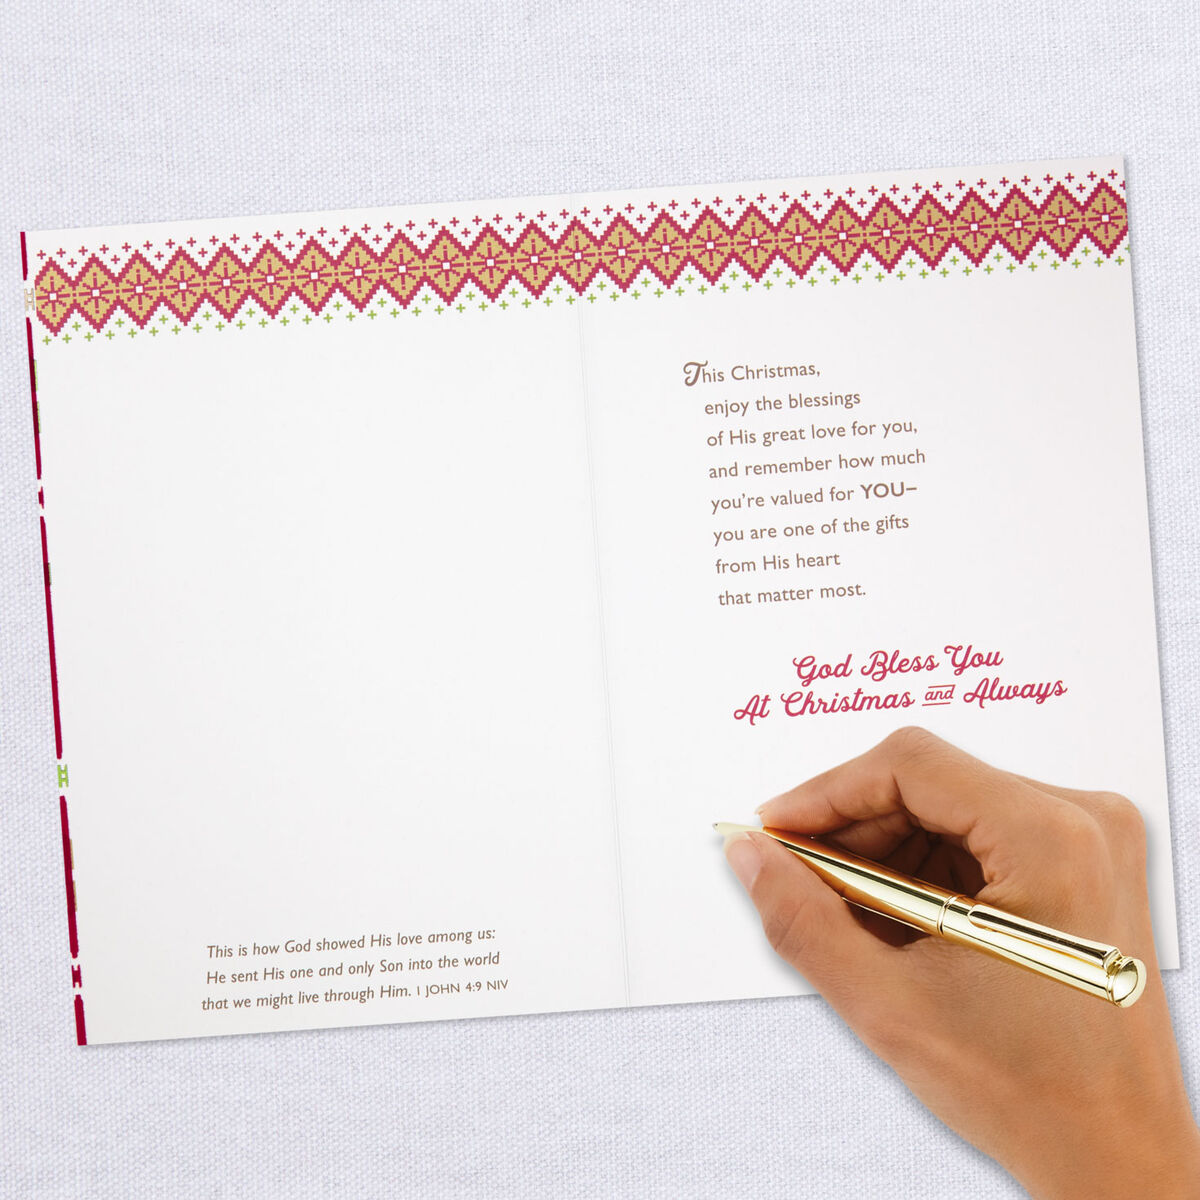 This is how God showed His love among us:
He sent His one and only Son into the world
that we might live through Him. 1 JOHN 4:9 NIV
This Christmas,
enjoy the blessings
of His great love for you,
and remember how much
you're valued for YOU–
you are one of the gifts
from His heart
that matter most.
God Bless You
At Christmas and Always